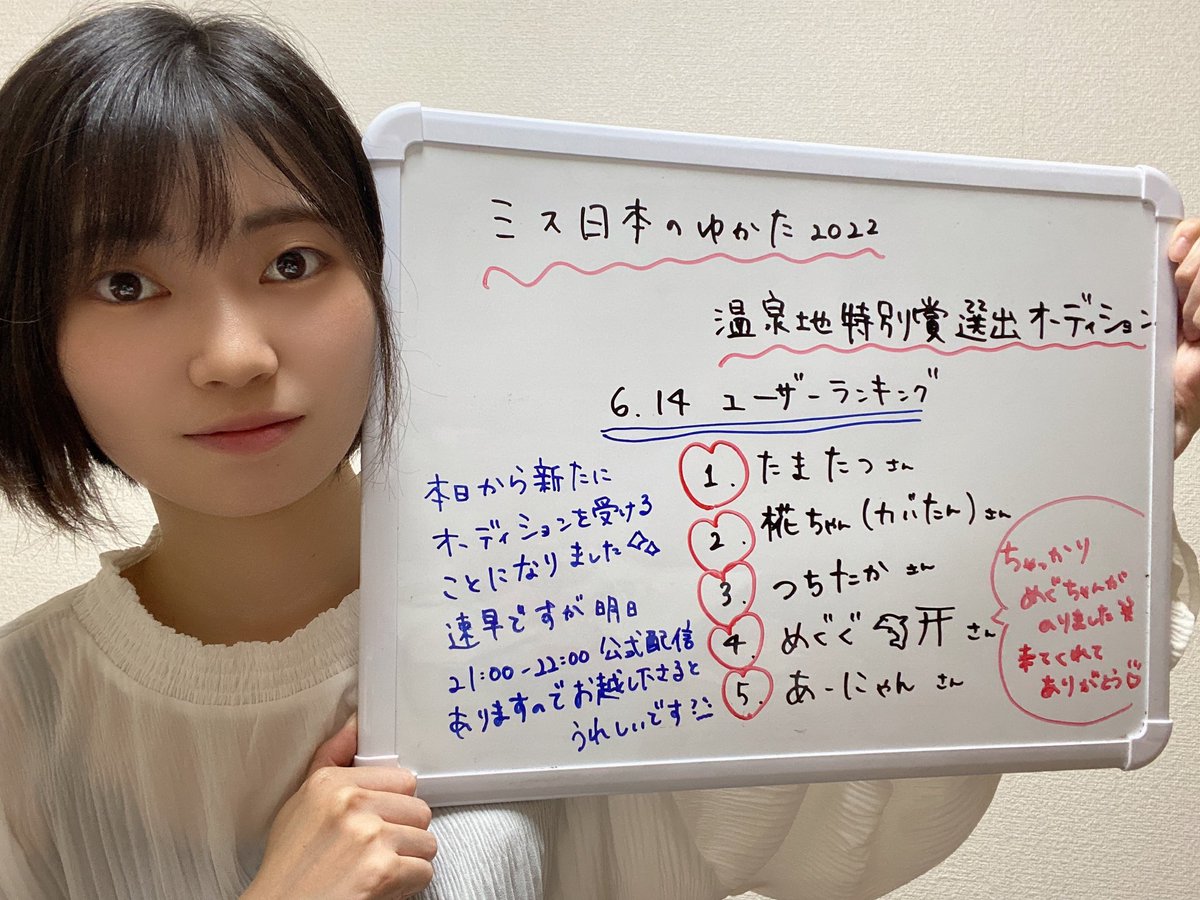 ミス日本のゆかた2022
温泉地特別賞選出オーディション
6.14 ユーザーランキング
1. たまたつさん
2. 椛ちゃん(カバたん)さん
3. つちたかさん
4. めぐぐ さん
5. あーにゃん さん
本日から新たに
オーディションを受ける
ことになりました
速早ですが明日
21:00-22:00 公式配信
ありますのでお越しださると
うれしいです
ちゃっかり
めぐちゃんが
のりました
来てくれて
ありがとう